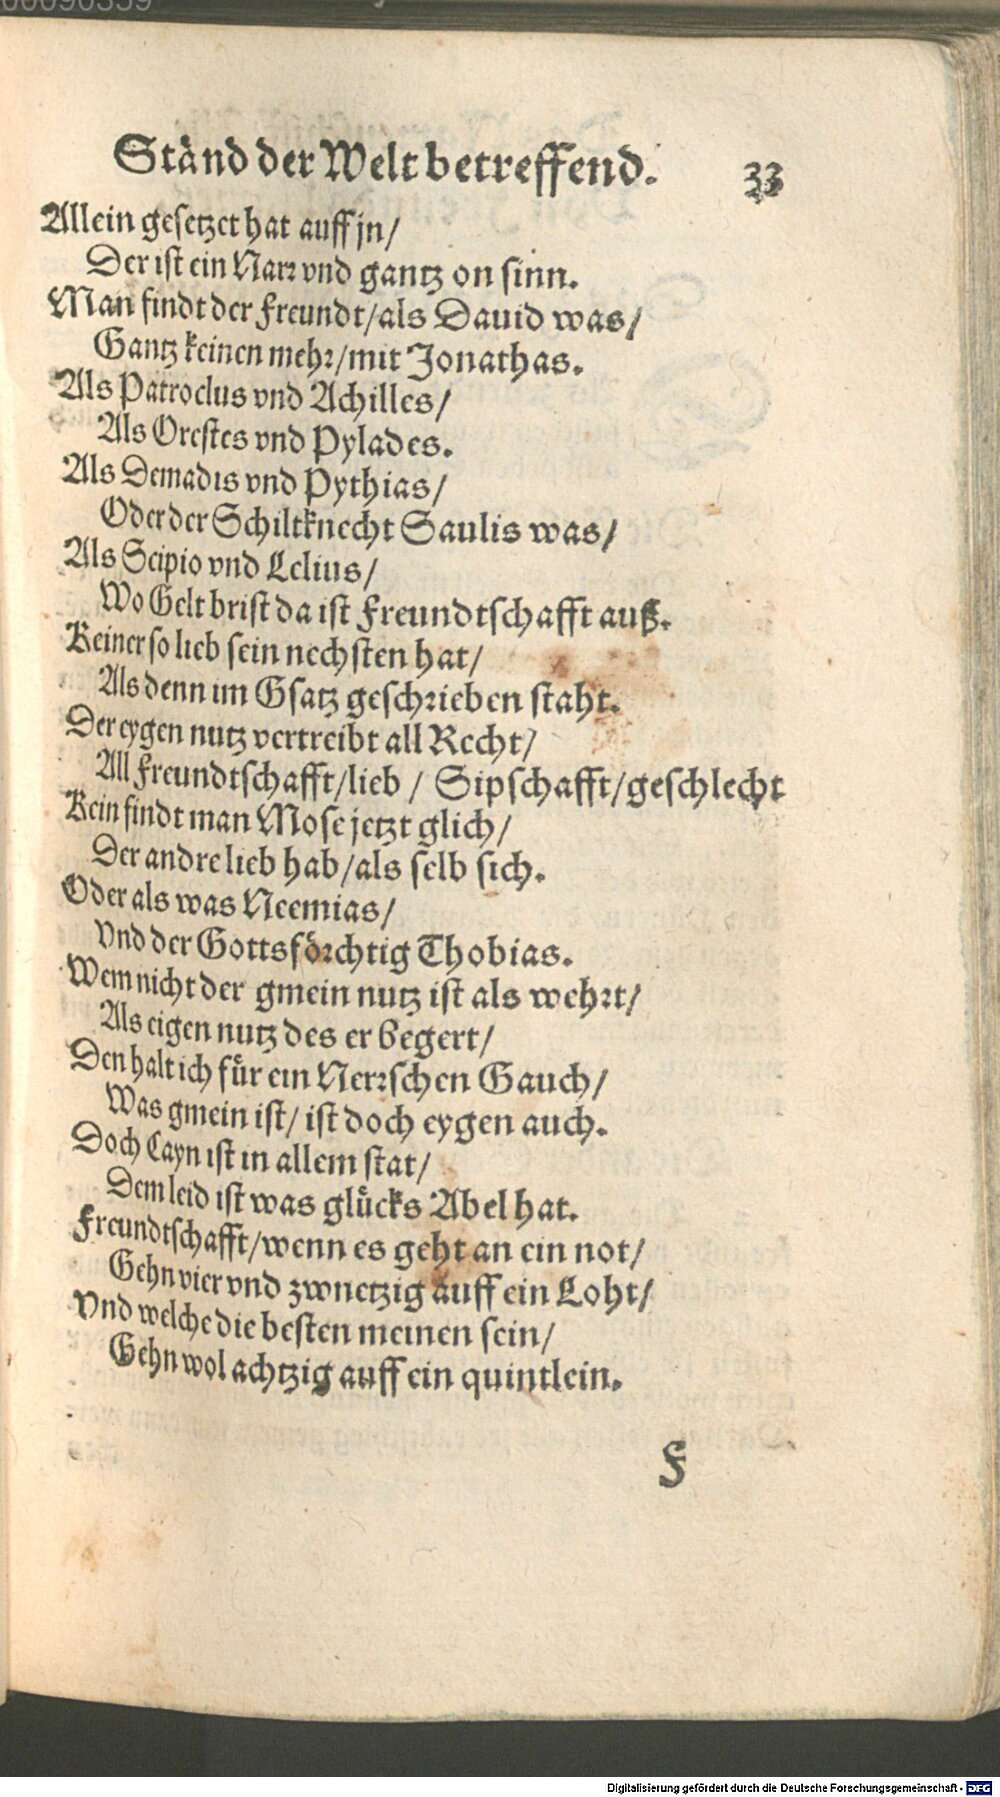 00090359
Ständ der Welt betreffend. 33
Allein gesetzet hat auff jn/
Der ist ein Narr vnd gantz on sinn.
Man findt der Freundt/als Dauid was/
Gantz keinen mehr/mit Jonathas.
Als Patroclus vnd Achilles/
Als Orestes vnd Pylades.
Als Demadis vnd Pythias/
Oder der Schiltknecht Saulis was/
Als Scipio vnd Lelius/
Wo Gelt brist da ist Freundtschafft auß.
Keiner so lieb sein nechsten hat/
Als denn im Gsatz geschrieben staht.
Der eygen nutz vertreibt all Recht/
All Freundtschafft/lieb / Sipschafft/geschlecht
Kein findt man Mose jetzt glich/
Der andre lieb hab/als selb sich.
Oder als was Neemias/
Vnd der Gottsförchtig Thobias.
Wem nicht der gmein nutz ist als wehrt/
Als eigen nutz des er begert/
Den halt ich für ein Nerrschen Gauch/
Was gmein ist/ ist doch eygen auch.
Doch Cayn ist in allem stat/
Dem leid ist was glücks Abel hat.
Freundtschafft/wenn es geht an ein not/
Gehn vier vnd zwnetzig auff ein Loht/
Vnd welche die besten meinen sein/
Gehn wol achtzig auff ein quintlein.
F
Digitalisierung gefördert durch die Deutsche Forschungsgemeinschaft - DFG